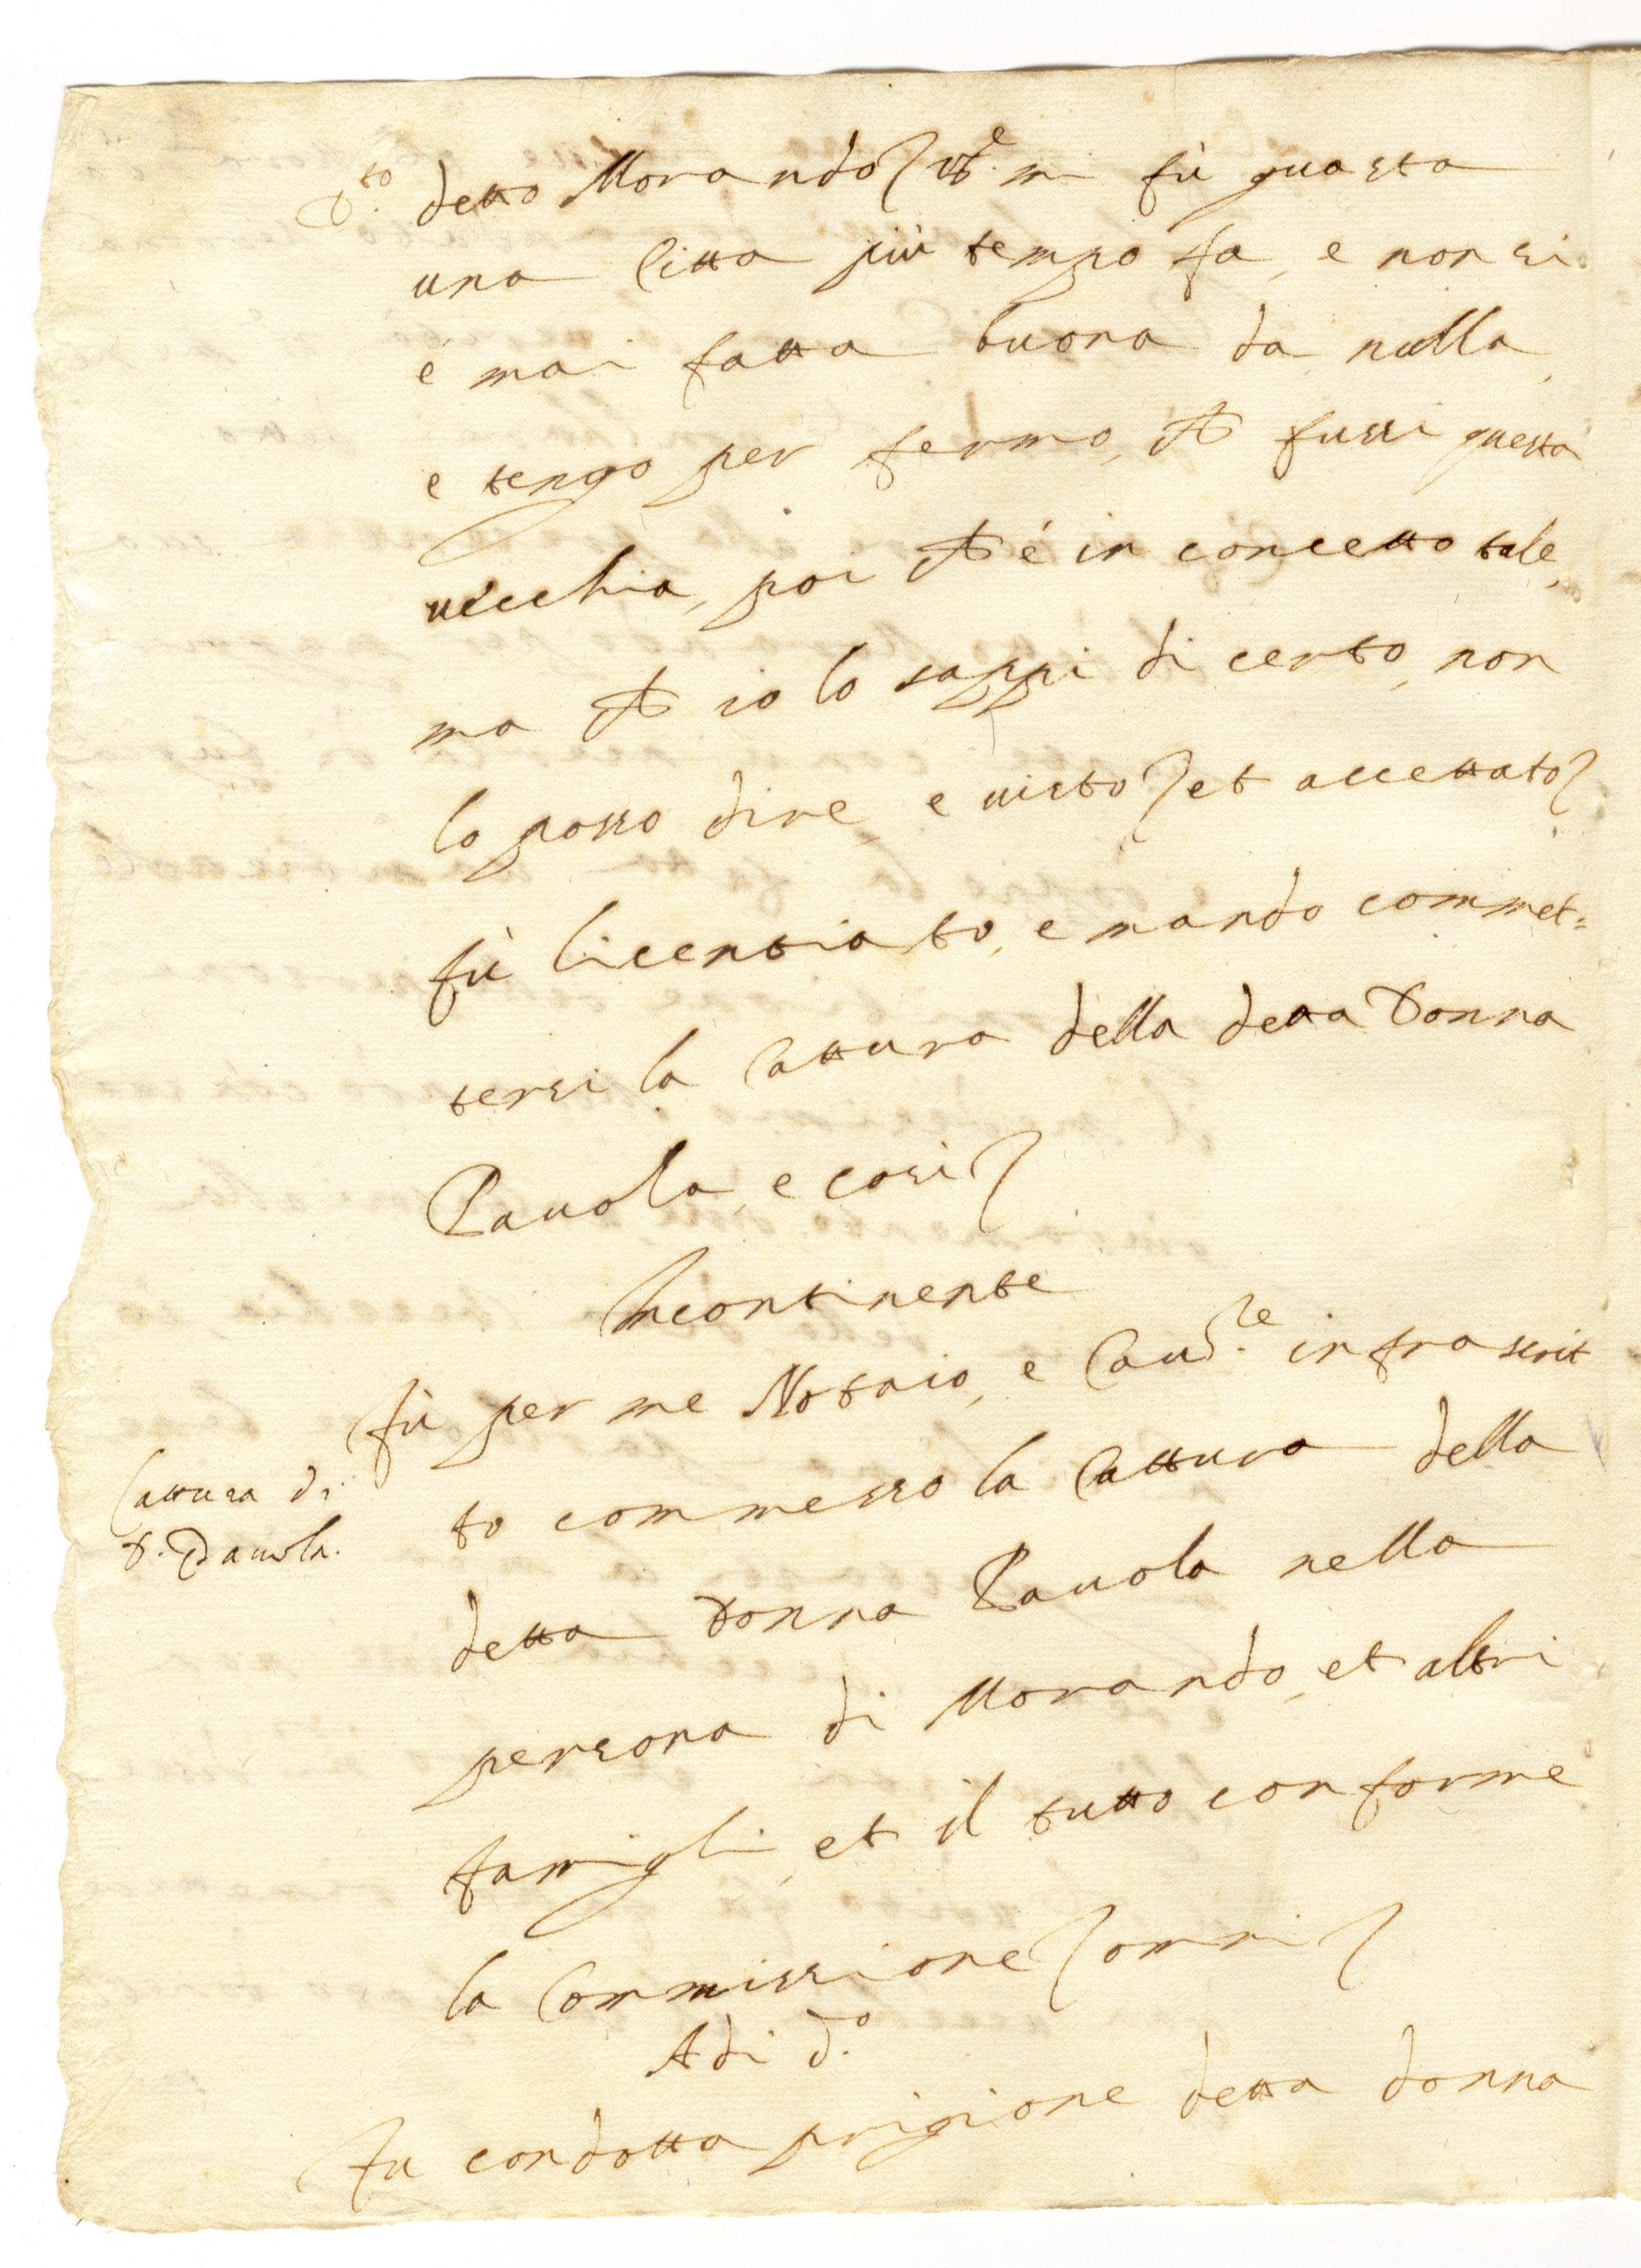 D.to detto Morando) V.S.e mi fù guasta
una Citta più tempo fa, e non si
é mai fatta buona da nulla,
e tengo per fermo, ch fussi questa
uecchia, poi ch é in concetto tale,
ma ch io lo sappi di certo, non
lo posso dire, e uisto) et accettato)
fù licentiato, e mando commet=
tersi la Cattura della detta Donna
Pauola, e cosi)
Incontinente
fù per me Notaio, e Cau.re infrascrit
to commesso la Cattura della
Cattura di
D. Pauola.
detta Donna Pauola nella
persona di Morando, et altri
famigli, et il tutto conforme
la Commissione) omni)
Adi d.o
Fu condotta prigione detta donna